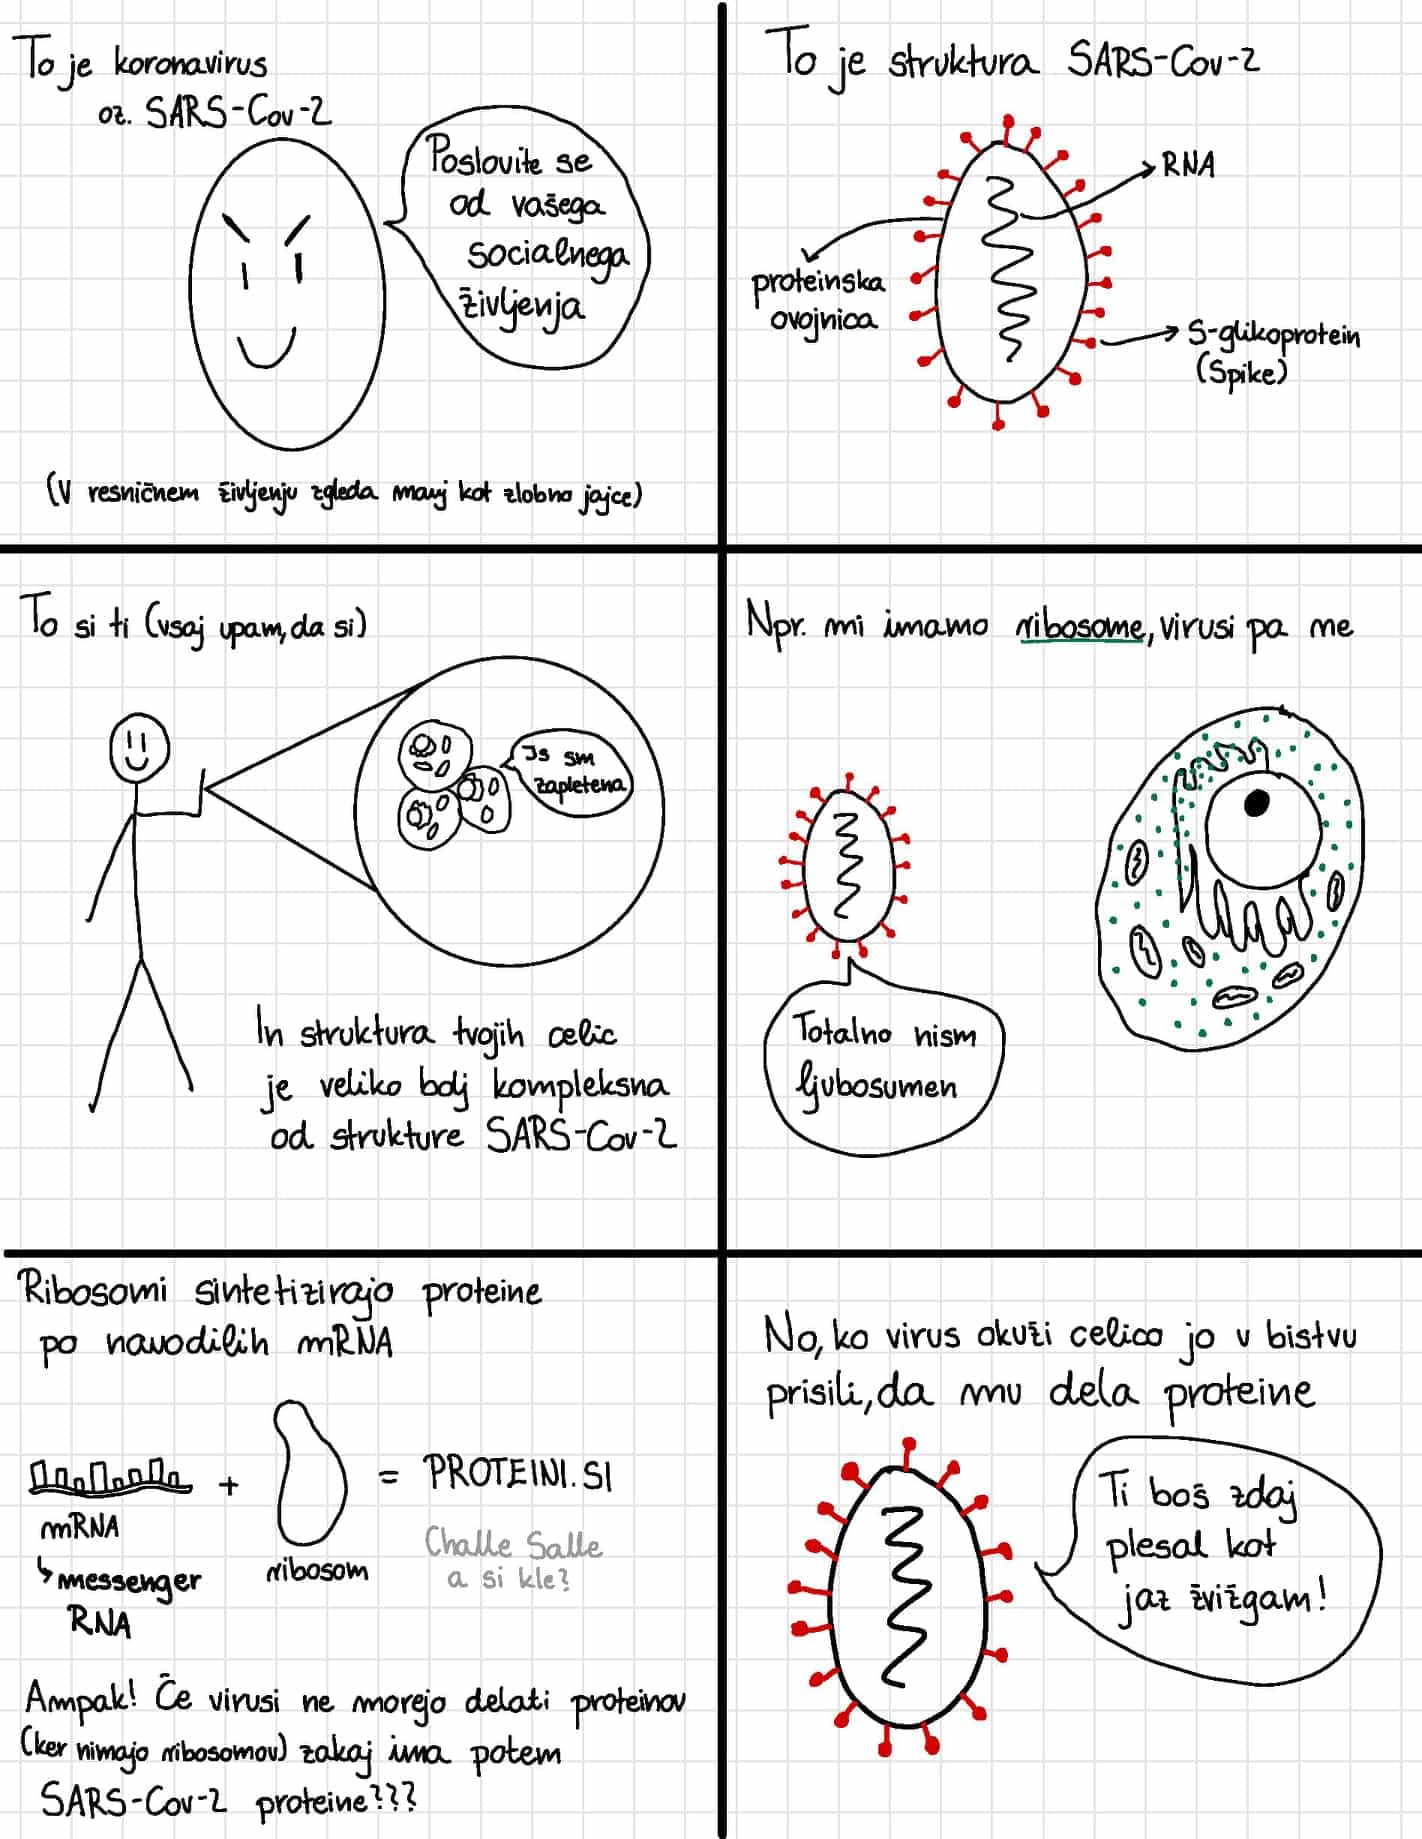 To je koronavirus
oz. SARS-Cov-2
Poslovite se
od vašega
socialnega
življenja
(V resničnem življenju zgleda manj kot zlobno jajce)
To je struktura SARS-Cov-2
RNA
proteinska
ovojnica
S-glikoprotein
(Spike)
To si ti (vsaj upam, da si)
Js sm
zapletena
In struktura tvojih celic
je veliko bolj kompleksna
od strukture SARS-Cov-2
Npr. mi imamo ribosome, virusi pa ne
Totalno nism
ljubosumen
Ribosomi sintetizirajo proteine
po navodilih mRNA
+
= PROTEINI.SI
mRNA
↳ messenger
RNA
ribosom
Challe Salle
a si kle?
Ampak! Če virusi ne morejo delati proteinov
(ker nimajo ribosomov) zakaj ima potem
SARS-Cov-2 proteine???
No, ko virus okuži celico jo v bistvu
prisili, da mu dela proteine
Ti boš zdaj
plesal kot
jaz žvižgam!